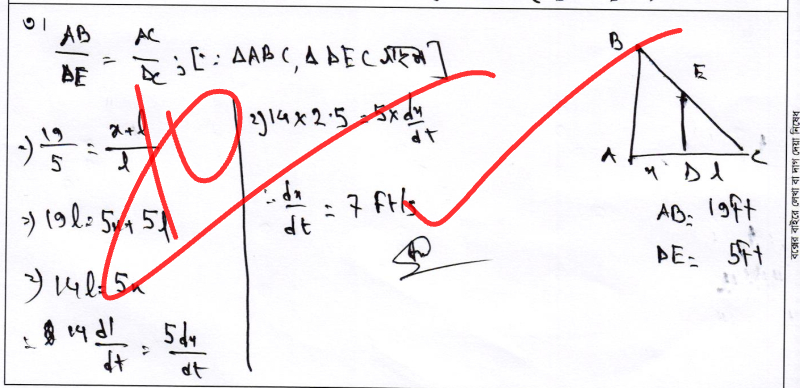 ৩।
AB/DE = AC/DC ; [∵ ΔABC, ΔDEC সদৃশ]
⇒) 19/5 = x+l/l
⇒) 19l = 5x + 5l
⇒) 14l = 5x
= 14 dl/dt = 5dx/dt
⇒) 14 × 2.5 = 5 × dx/dt
∴ dx/dt = 7 ft/s
10
B
E
A x D l C
AB = 19ft
DE = 5ft
বক্সের বাইরে লেখা বা দাগ দেয়া নিষেধ